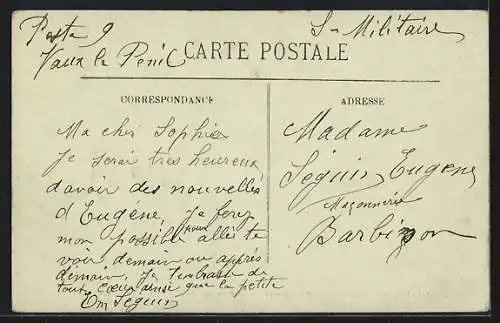 Poste 9
Vaux le Penil
S- Militaire
CARTE POSTALE
CORRESPONDANCE
ADRESSE
Ma cher Sophie
je serai tres heureux
davoir des nouvelles
d'Eugéne, je ferez
mon possible pour allèe te
voir demain ou après
demain, je t'embrasse de
tout cœur ainsi que la petite
Em Seguin
Madame
Séguin Eugene
Maçonnerie
Barbizon